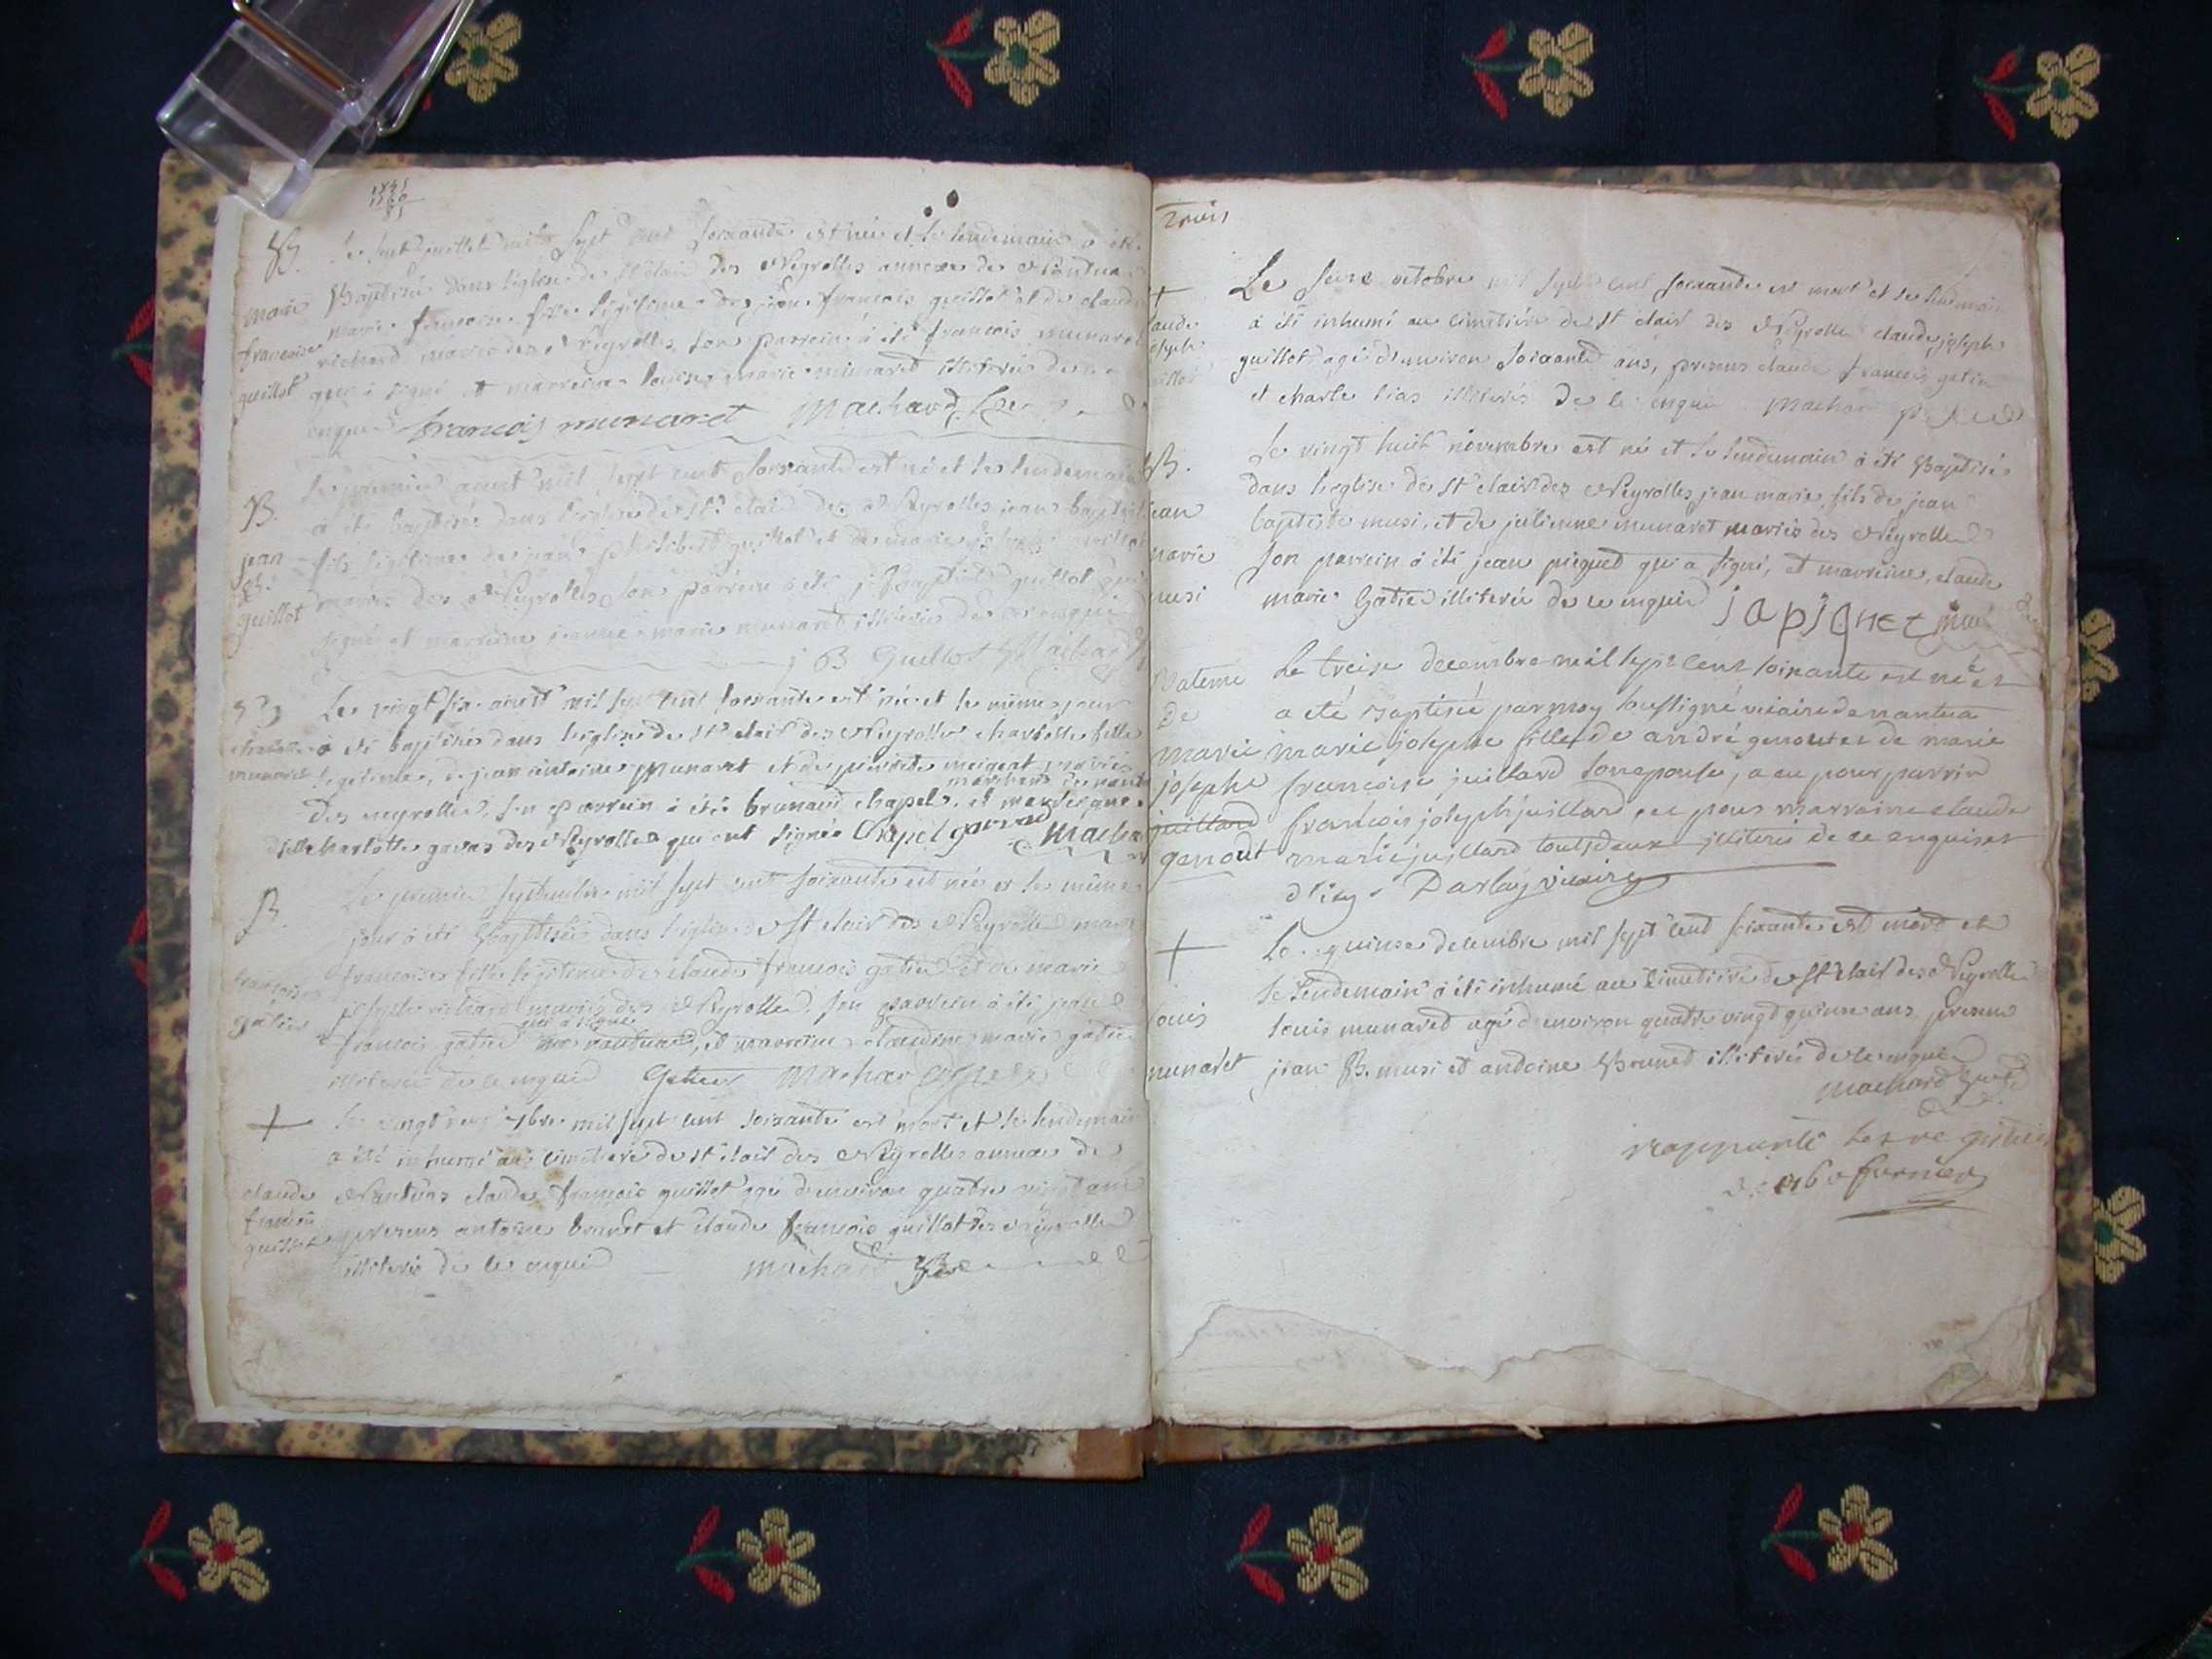 B. Le sept juillet mil sept cent soixante est née et le lendemain a été
marie Baptisée dans l'eglise de st clair des Neyrolles annexe de Nantua
françoise marie francoise fille legitime de jean françois guillot et de claude
guillot richard mariés des Neyrolles son parrein à été françois munaret
qui a signé et marreine louise marie munaret illiterée de ce
enquis francois munaret Machard
B. Le premier aout mil sept cent soixante est né et le lendemain
jean à été baptisé dans l'eglise de st clair des Neyrolles jean baptiste
B. fils legitime de jean philibert guillot et de marie
guillot mariés des Neyrolles son parrein à été j. Baptiste guillot qui
signé et marreine jeanne marie munaret illiterée de ce enquise
j B Guillot Machard
Le vingt six aout mil sept cent soixante est née et le même jour
à été baptisée dans l'eglise de st clair des Neyrolles charlotte fille
munaret legitime de jean antoine munaret et de pierrette meigent mariés
des neyrolles, son parrein à été brunaud chapel, et marreine
dlle charlotte gavas des Neyrolles qui ont signé Chapel gavad Macha
B. Le premier septembre mil sept cent soixante est née et le même
jour à été Baptisée dans l'eglise de st clair des Neyrolles marie
françoise francoise fille legitime de claude francois gatier et de marie
gatier joseph richard mariés des Neyrolles. son parrein à été jean
qui a signé
francois gatier de nantua, et marreine claudine marie gatier
illiterée de ce enquis Gatier Machard
+ Le vingt 7bre mil sept cent soixante est mort et le lendemain
a été inhumé au cimetiere de st clair des Neyrolles annexe de
claude Nantua claude françois guillot agé d'environ quatre vingt ans
françois presens antoine brunet et claude françois guillot des neyrolles
guillot
illiterés de ce enquis Machard
Trois
+ Le seize octobre mil sept cent soixante est mort et le lendemain
aude à été inhumé au cimetière de st clair des Neyrolle claude joseph
oseph guillot agé d'environ soixante ans, presens claude francois gatier
uillot et charle bias illiterés de ce enquis Machard
B. Le vingt huit novembre est né et le lendemain à été Baptisé
dans l'eglise de st clair des Neyrolles jean marie, fils de jean
jean baptiste musi, et de julienne munaret mariés des Neyrolle
marie son parrein à été jean piquet qui a signé, et marreine, claude
musi marie Gatier illiterée de ce enquis japiqnet
Bateme Le treise decembre mil sept cent soixante est née et
De a eté Baptisée par moy soussigné vicaire de nantua
marie marie josephe fille de andré genout et de marie
josephe francoise juillard son epouse, a eu pour parrin
juillard francois joseph juillard, et pour marraine claude
genout marie juillard tous deux illiterés de ce enquis et
d'icy. Darlay vicaire
+ Le quinse decembre mil sept cent soixante est mort et
le lendemain à été inhumé au cimetiere de st clair des Neyrolle
louis louis munaret agé d'environ quatre vingt quinse ans presens
munaret jean B. musi et andoine Brunet illiterés de ce enquis
Machard
rapporté les registres
de 1760 furnier